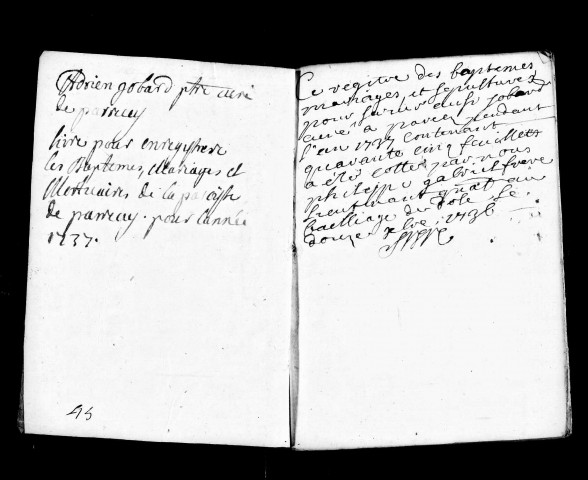 Adrien gobard ptre curé
de parrecey
livre pour enregistrere
les Baptemes, Mariages et
Mortuaires de la paroisse
de parrecey. pour l'année
1737.
45
Ce registre des baptemes
mariages, et sepultures
pour servir au sr gobard
curé a parrecey pendant
l'an 1737 contenant
quarante cinq feuillets
a été cotté par nous
philippe gabriel frere
lieutenant gnāl au
bailliage de Dole le
douze xbre 1736